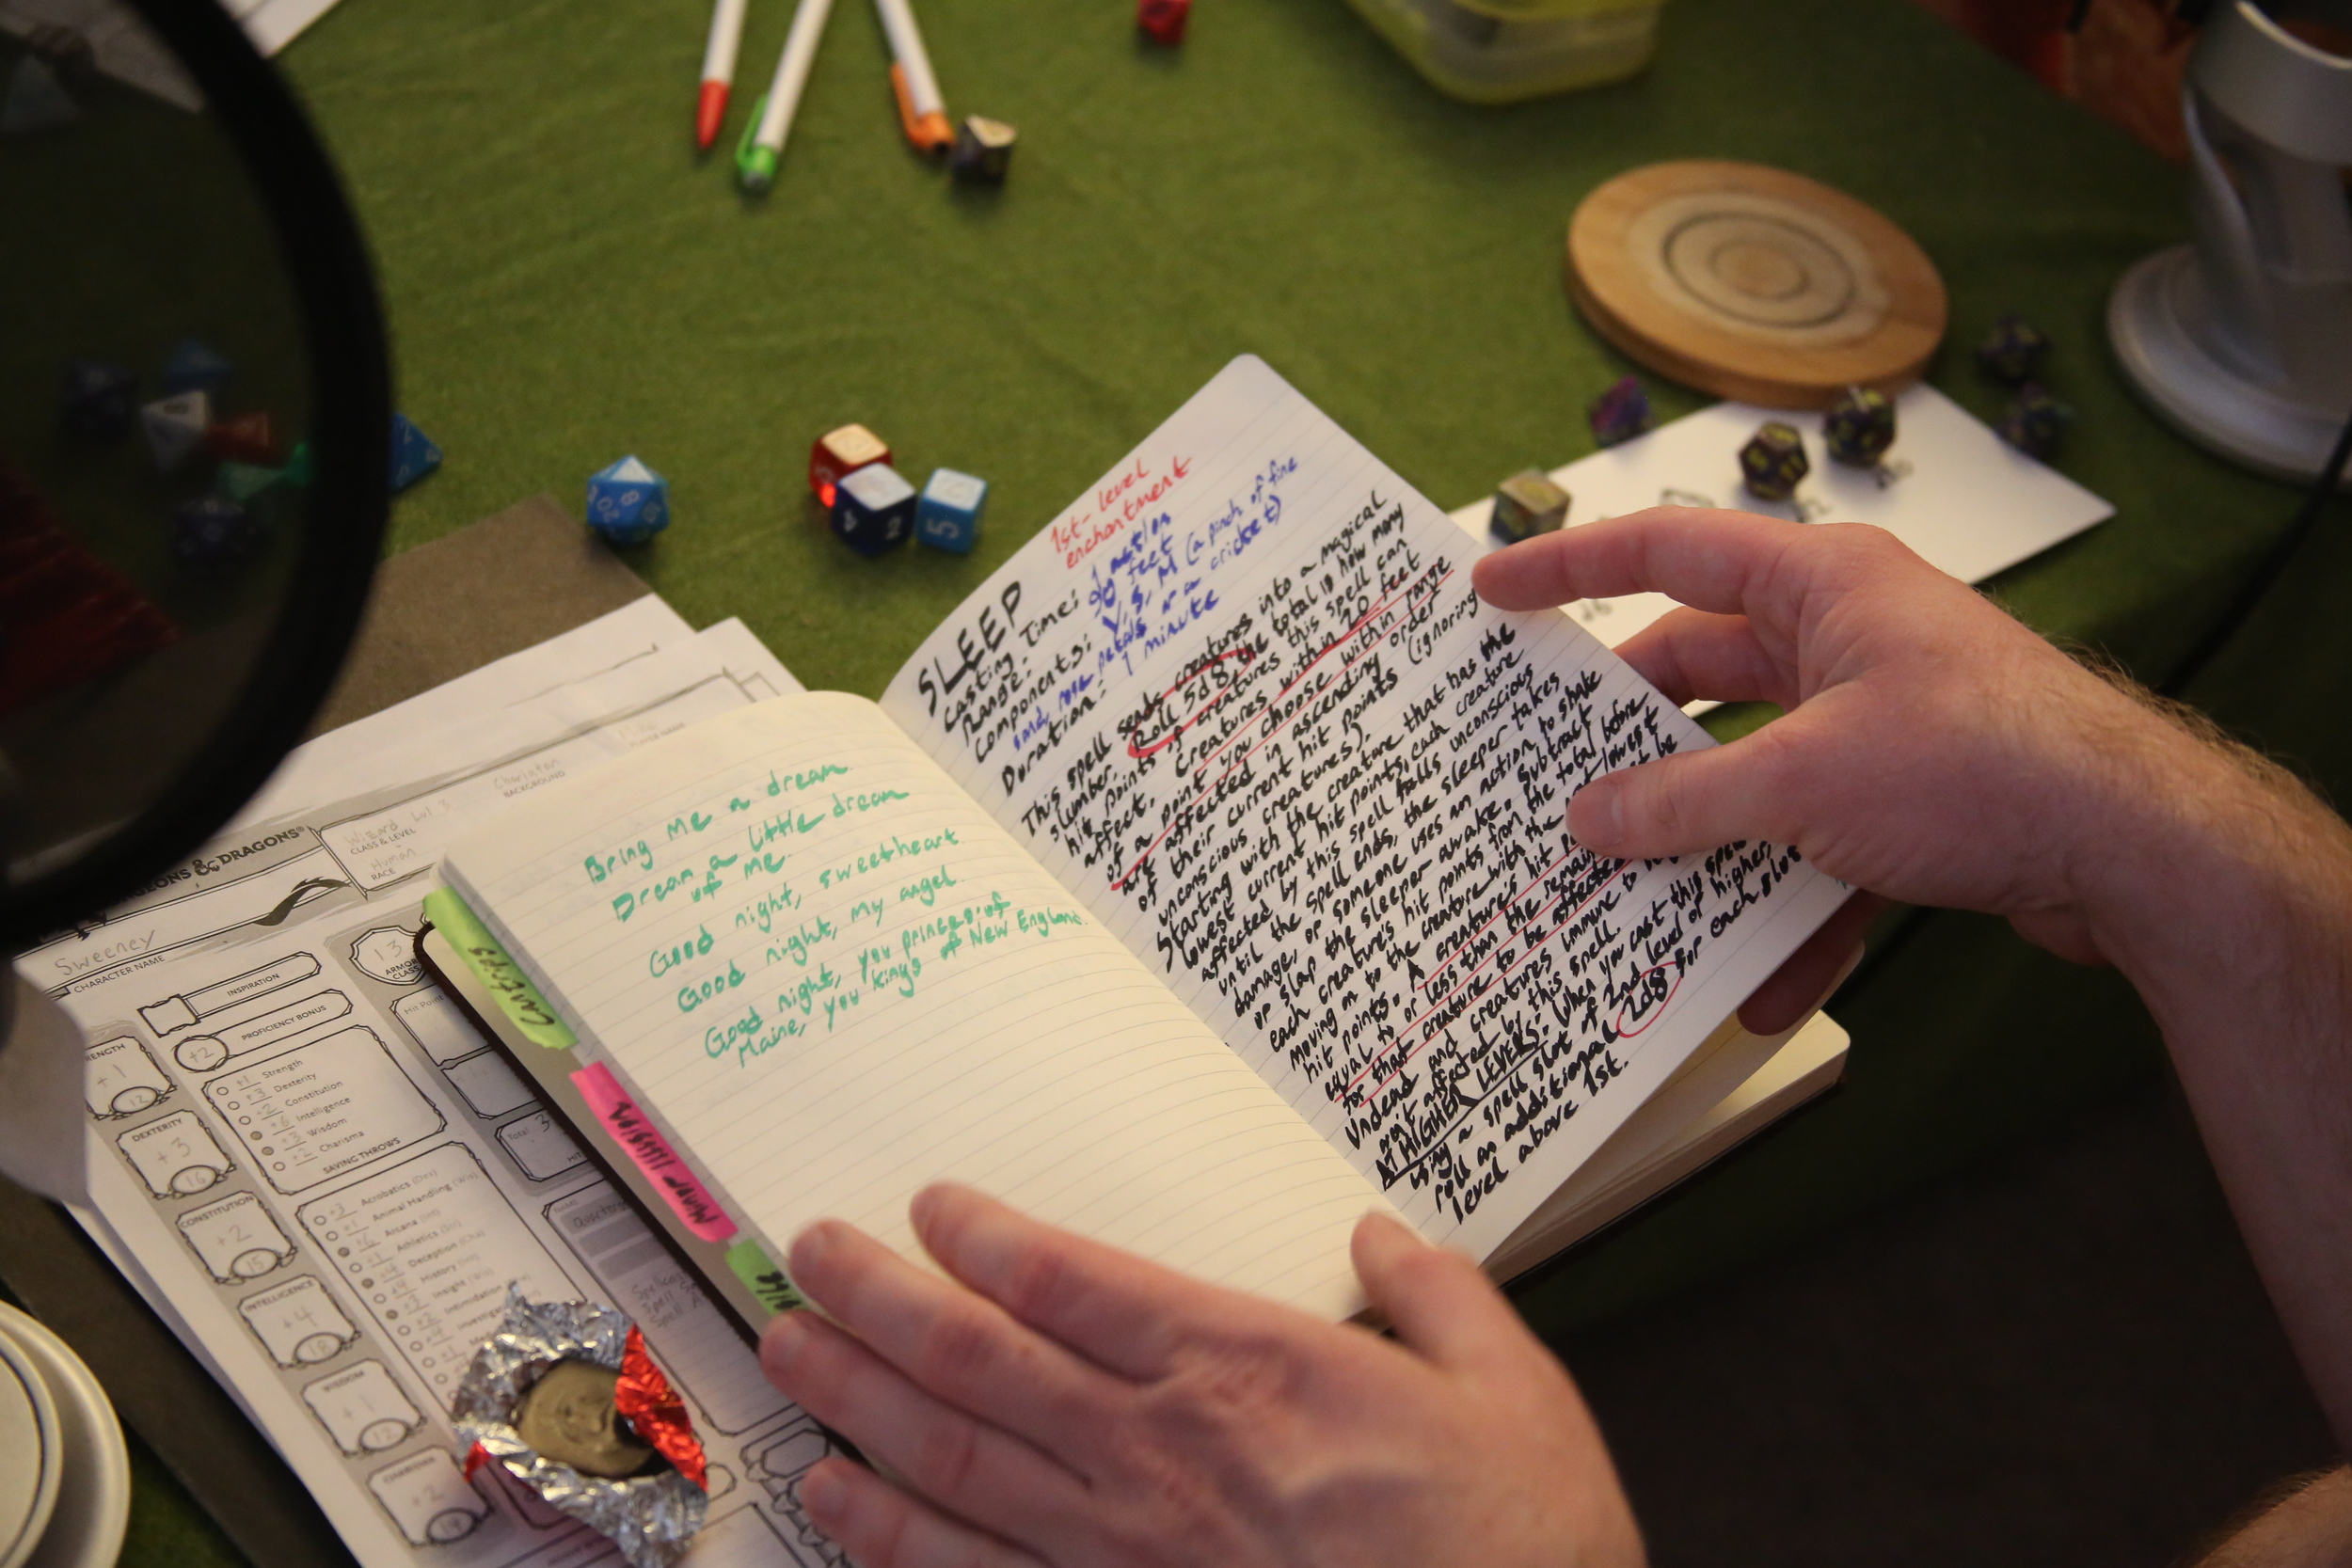 Bring me a dream
Dream a little dream
of me.
Good night, sweetheart
Good night, my angel
Good night, you princes of
Maine, you kings of New England.
SLEEP
1st-level
enchantment
Casting Time: 1 action
Range: 90 feet
Components: V, S, M (a pinch of fine
sand, rose petals or a cricket)
Duration: 1 minute
This spell sends creatures into a magical
slumber. Roll 5d8 the total is how many
hit points of creatures this spell can
affect. Creatures within 20 feet
of a point you choose within range
are affected in ascending order
of their current hit points (ignoring
unconscious creatures).
Starting with the creature that has the
lowest current hit points, each creature
affected by this spell falls unconscious
until the spell ends, the sleeper takes
damage, or someone uses an action to shake
or slap the sleeper awake. Subtract
each creature's hit points from the total before
moving on to the creature with the lowest
hit points. A creature's hit be
equal to or less than the
for that creature to be affected
Undead and creatures immune to
not affected by this spell.
AT HIGHER LEVELS: When you cast this spell
using a spell slot of 2nd level or higher,
roll an additional 2d8 for each slot
level above 1st.
Cantrips
Minor Illusion
DUNGEONS & DRAGONS®
Sweeney
CHARACTER NAME
Wizard Lvl 3
CLASS & LEVEL
Human
RACE
Charlatan
BACKGROUND
PLAYER NAME
INSPIRATION
+2
PROFICIENCY BONUS
13
ARMOR
CLASS
STRENGTH
+1
12
DEXTERITY
+3
16
CONSTITUTION
+2
15
INTELLIGENCE
+4
18
WISDOM
+1
CHARISMA
+2
+1 Strength
+3 Dexterity
+2 Constitution
+6 Intelligence
+3 Wisdom
+2 Charisma
SAVING THROWS
+3 Acrobatics (Dex)
+1 Animal Handling (Wis)
+6 Arcana (Int)
+1 Athletics (Str)
+4 Deception (Cha)
History (Int)
Insight (Wis)
Intimidation
Hit Point
Total
3